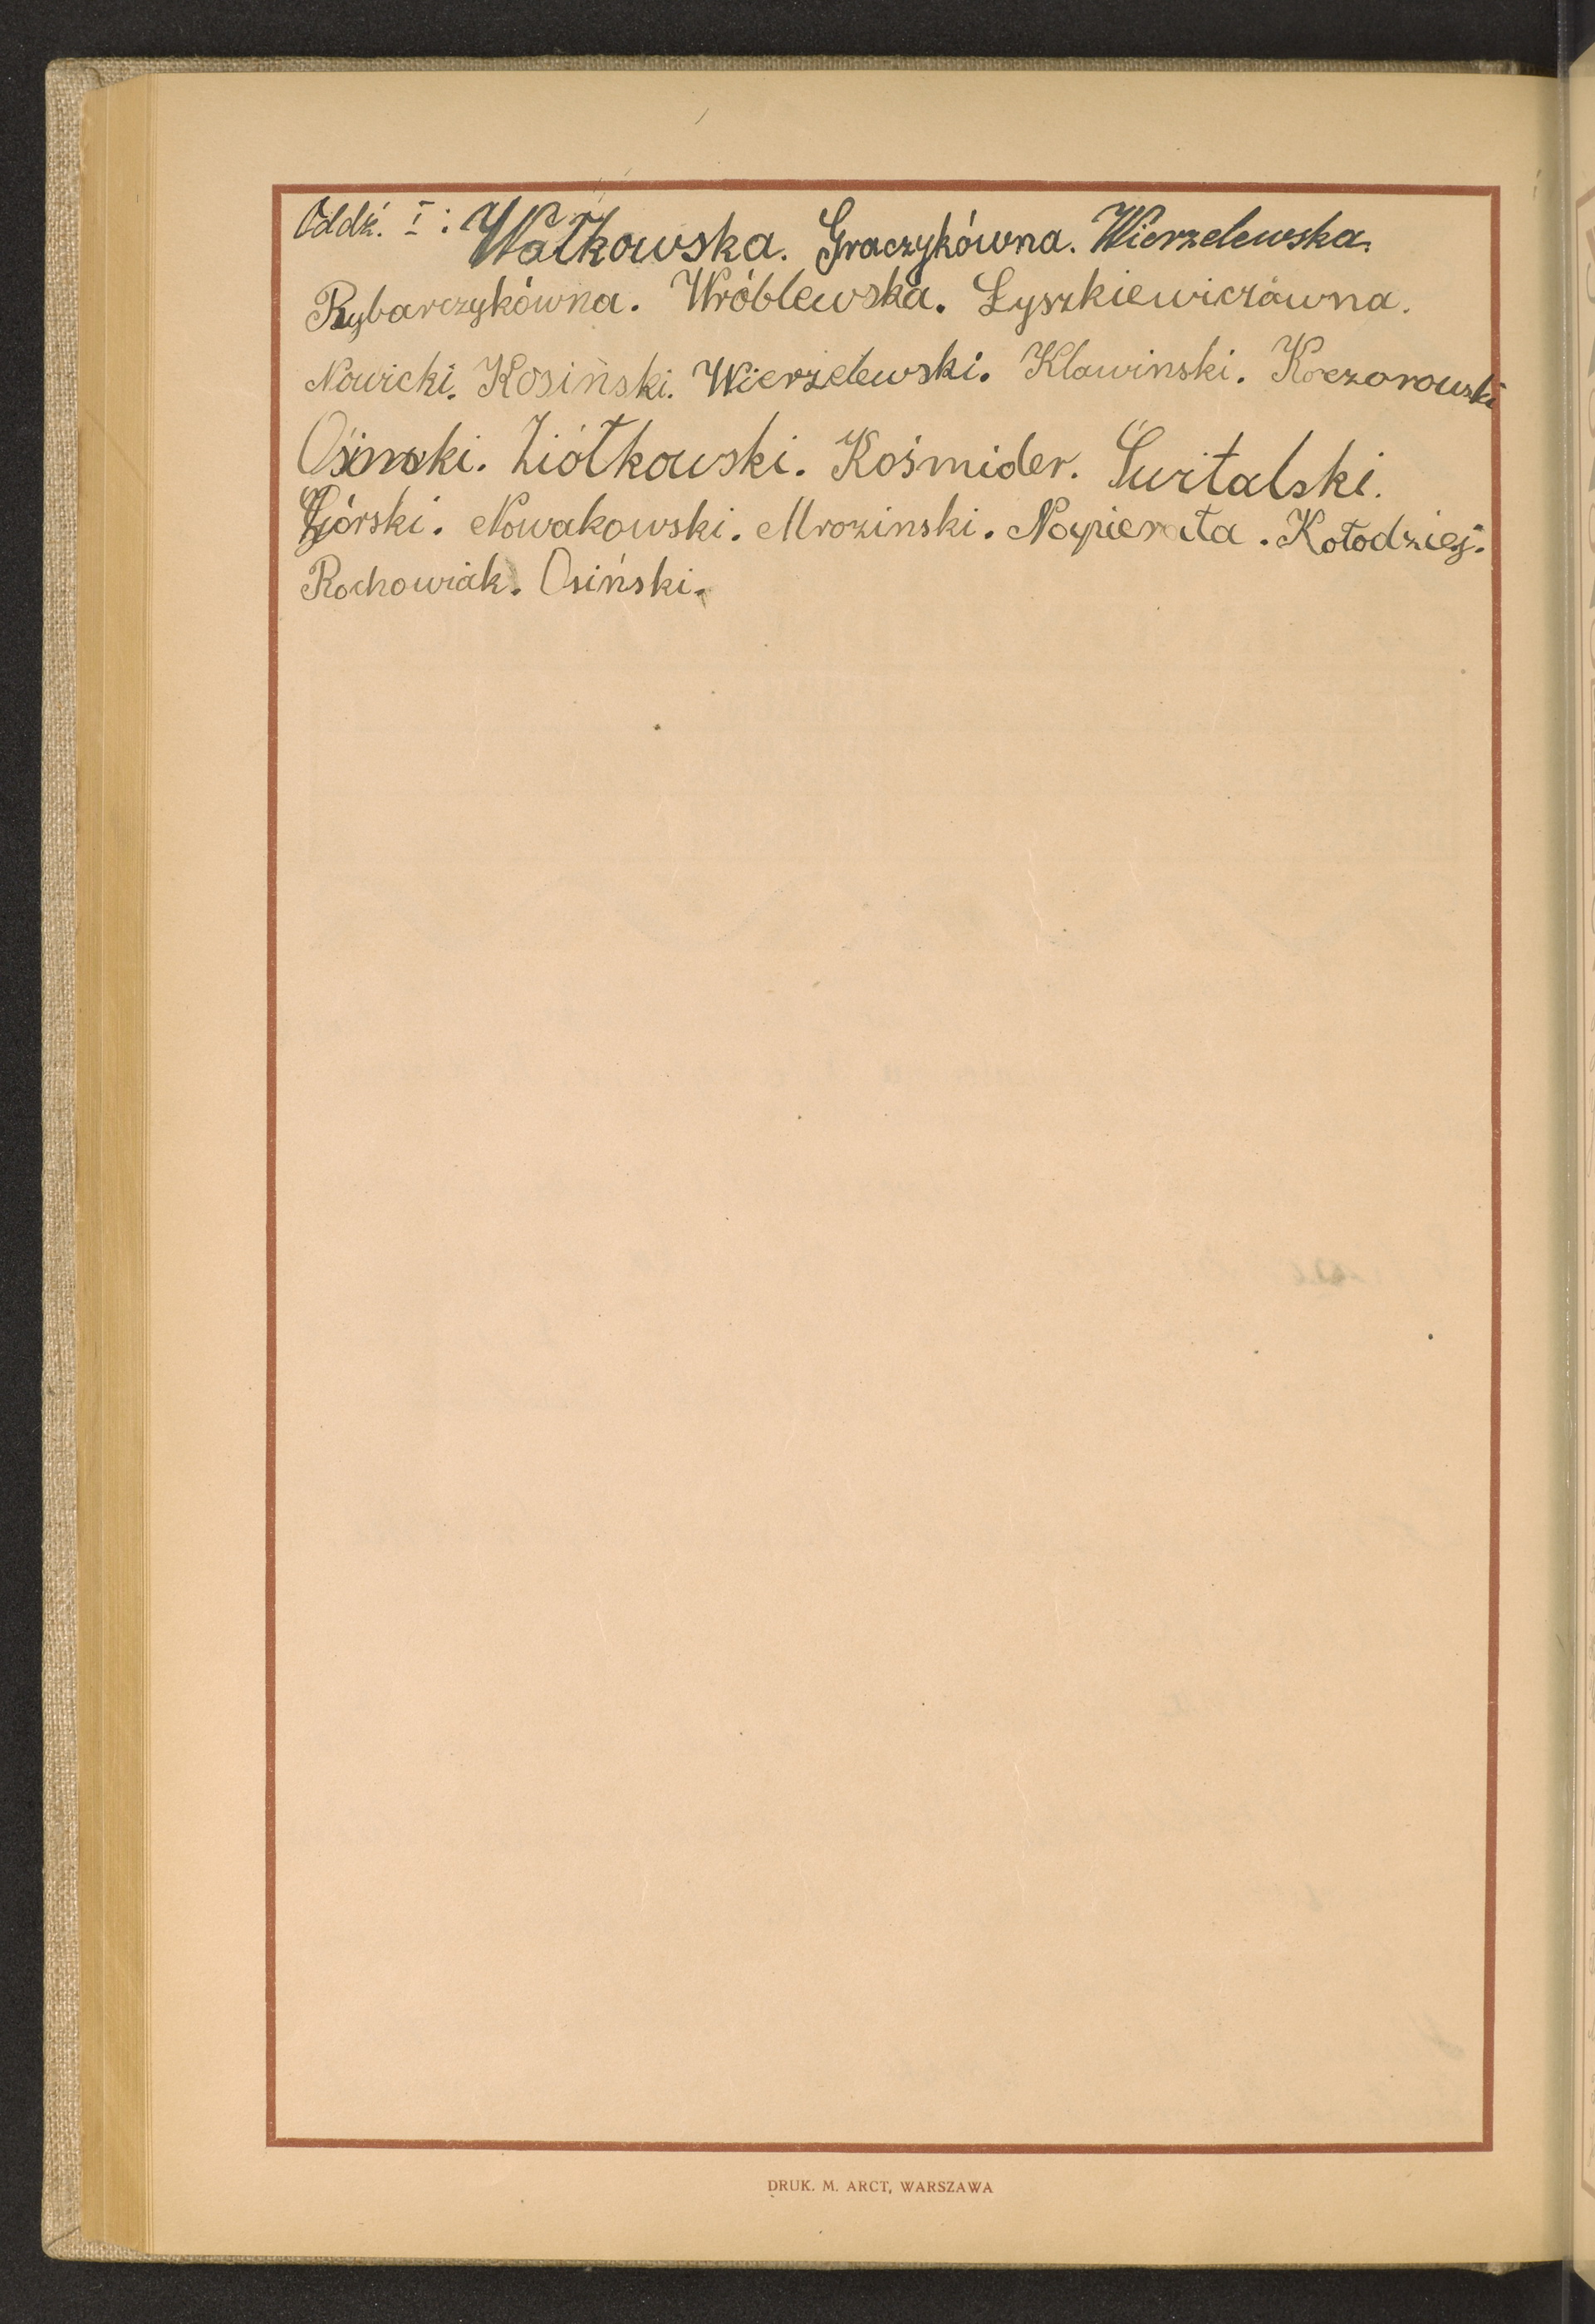 Oddź. I: Wałkowska. Graczykówna. Wierzelewska.
Rybarczykówna. Wróblewska. Łyszkiewiczówna.
Nowicki. Kosiński. Wierzelewski. Klawinski. Koczorowski
Osinski. Ziółkowski. Kośmider. Świtalski.
Górski. Nowakowski. Mrozinski. Napierała. Kołodziej.
Rochowiak. Osiński.
DRUK. M. ARCT, WARSZAWA